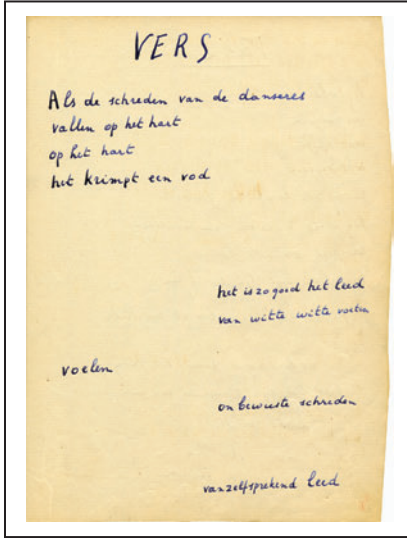 VERS
Als de schreden van de danseres
vallen op het hart
op het hart
het krimpt een vod
het is zo goed het leed
van witte witte voeten
voelen
onbewuste schreden
vanzelfsprekend leed